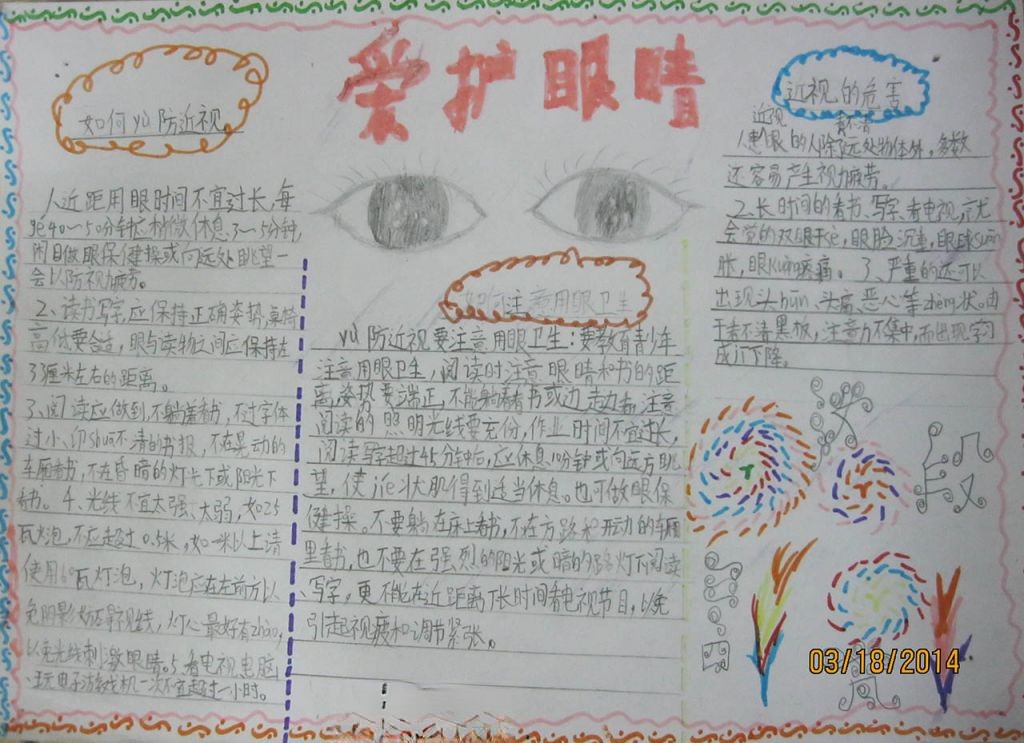 爱护眼睛
如何yù防近视
人近距用眼时间不宜过长,每
40~50分钟休息3~5分钟,
闭目做眼保健操或向远处眺望一
会以防视力疲劳。
2、读书写字应保持正确姿势,桌椅
高低要合适,眼与读物之间应保持在
33厘米左右的距离。
3、阅读应做到不躺着看书,不过字体
过小、印shuā不清的书报,不在晃动的
车厢看书,不在昏暗的灯光下或阳光下
看书。4、光线不宜太强、太弱,如25
瓦灯泡,不应超过0.5米,如一米以上请
使用60瓦灯泡,灯泡应在左前方以
免阴影妨碍视线,灯最好有zhào,
以免光线刺激眼睛。5看电视电脑
玩电子游戏机一次不宜超过一小时。
如何注意用眼卫生
yù防近视要注意用眼卫生:要教育青少年
注意用眼卫生,阅读时注意眼睛和书的距
离,姿势要端正,不能躺着看书或边走边看,注意
阅读的照明光线要充份,作业时间不宜过长,
阅读写字超过45分钟后,应休息10分钟或向远方眺
望,使jié状肌得到适当休息。也可做眼保
健操。不要躺在床上看书,不在方路和开动的车厢
里看书,也不要在强烈的阳光或暗的路灯下阅读
、写字。更不能在近距离下长时间看电视节目,以免
引起视疲和调节紧张。
近视的危害
近视 看不清
人患眼的人除远处物体外,多数
还容易产生视力疲劳。
2、长时间的看书、写字、看电视,尤
会觉的双眼干sè,眼脸沉重,眼球suān
胀,眼kuàng疼痛。3、严重的还可以
出现头hūn、头痛、恶心等zhèng状。由
于看不清黑板,注意力不集中,而出现学习
成jì下降。
03/18/2014